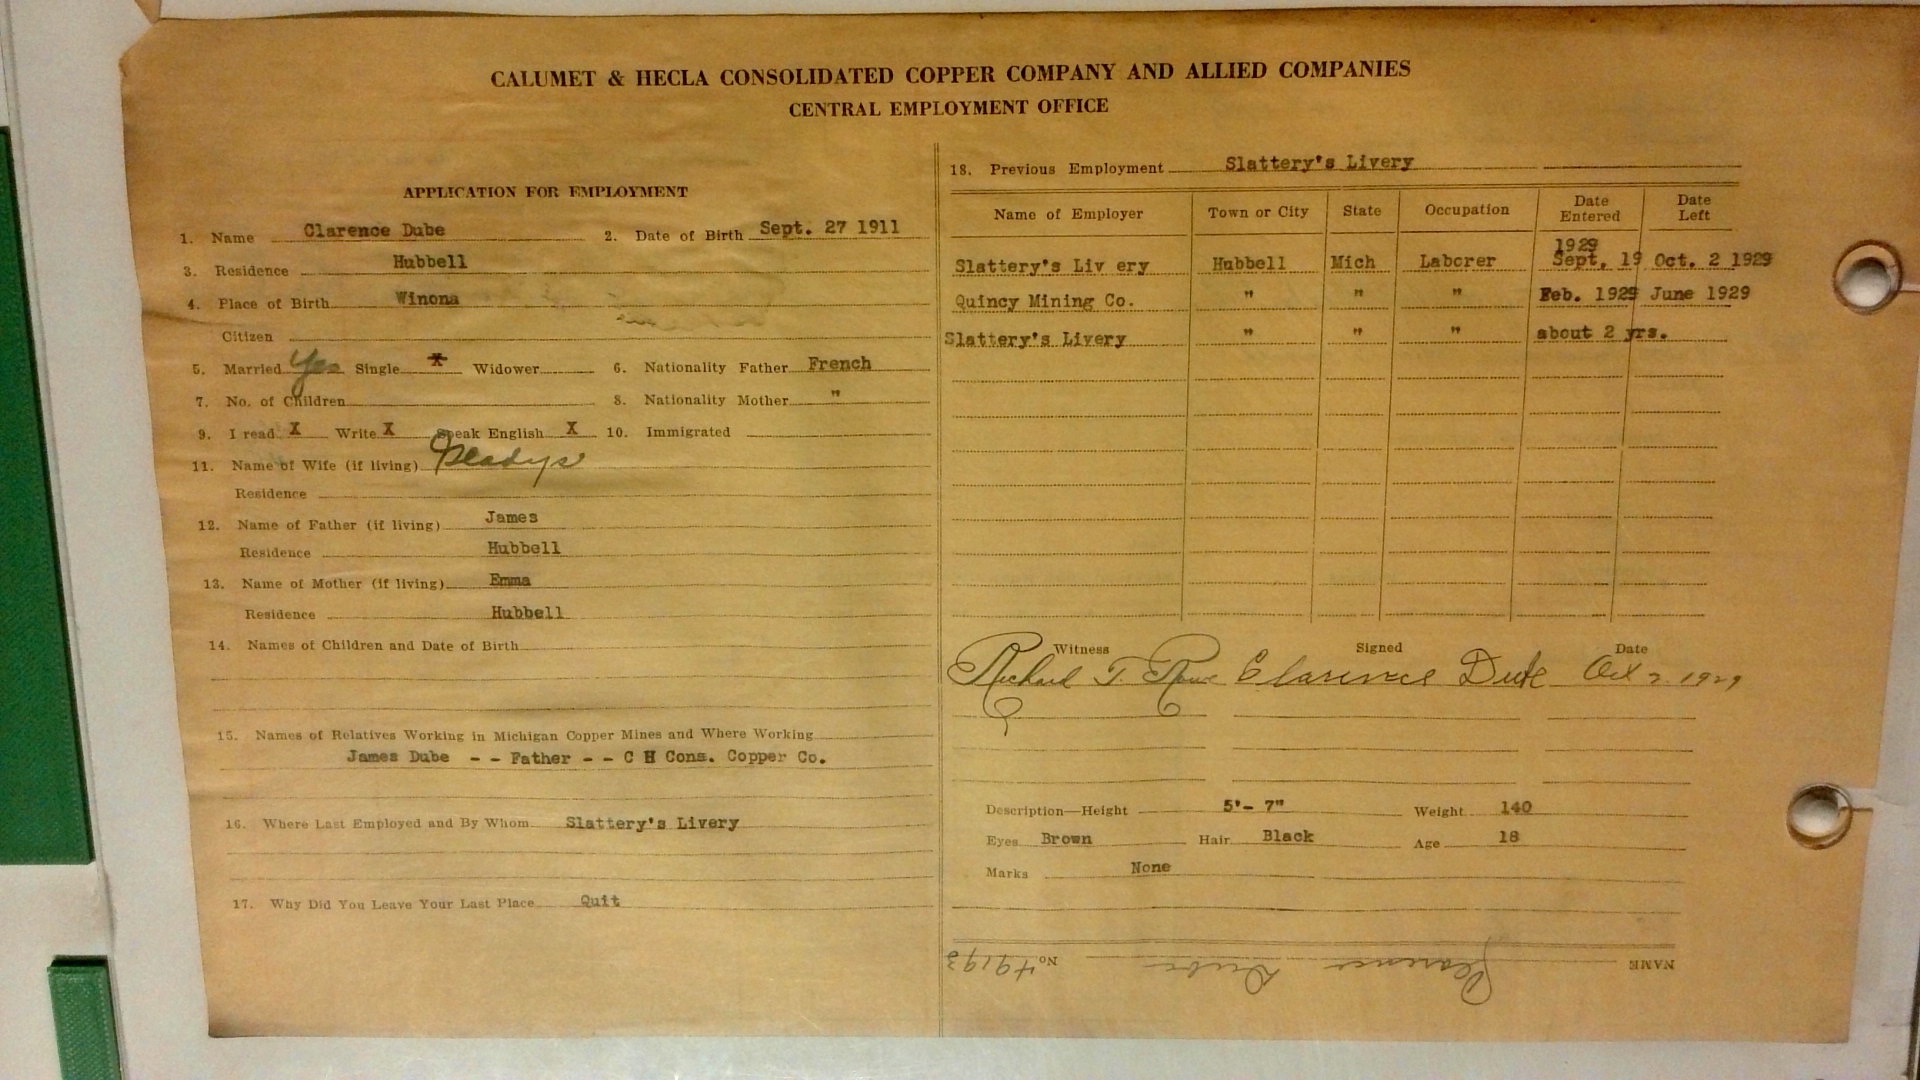 CALUMET & HECLA CONSOLIDATED COPPER COMPANY AND ALLIED COMPANIES
CENTRAL EMPLOYMENT OFFICE
APPLICATION FOR EMPLOYMENT
1. Name Clarence Dube 2. Date of Birth Sept. 27 1911
3. Residence Hubbell
4. Place of Birth Winona
Citizen
5. Married Yes Single X Widower 6. Nationality Father French
7. No. of Children 8. Nationality Mother "
9. I read X Write X Speak English X 10. Immigrated
11. Name of Wife (if living) Gladys
Residence
12. Name of Father (if living) James
Residence Hubbell
13. Name of Mother (if living) Emma
Residence Hubbell
14. Names of Children and Date of Birth
15. Names of Relatives Working in Michigan Copper Mines and Where Working
James Dube - - Father - - C H Cons. Copper Co.
16. Where Last Employed and By Whom Slattery's Livery
17. Why Did You Leave Your Last Place Quit
18. Previous Employment Slattery's Livery
Name of Employer Town or City State Occupation Date Entered Date Left
1929
Slattery's Liv ery Hubbell Mich Laborer Sept. 19 Oct. 2 1929
Quincy Mining Co. " " " Feb. 1929 June 1929
Slattery's Livery " " " about 2 yrs.
Witness Signed Date
Richard T. Clarence Dube Oct 2. 1929
Description—Height 5'- 7" Weight 140
Eyes Brown Hair Black Age 18
Marks None
NAME Clarence Dube No 49193